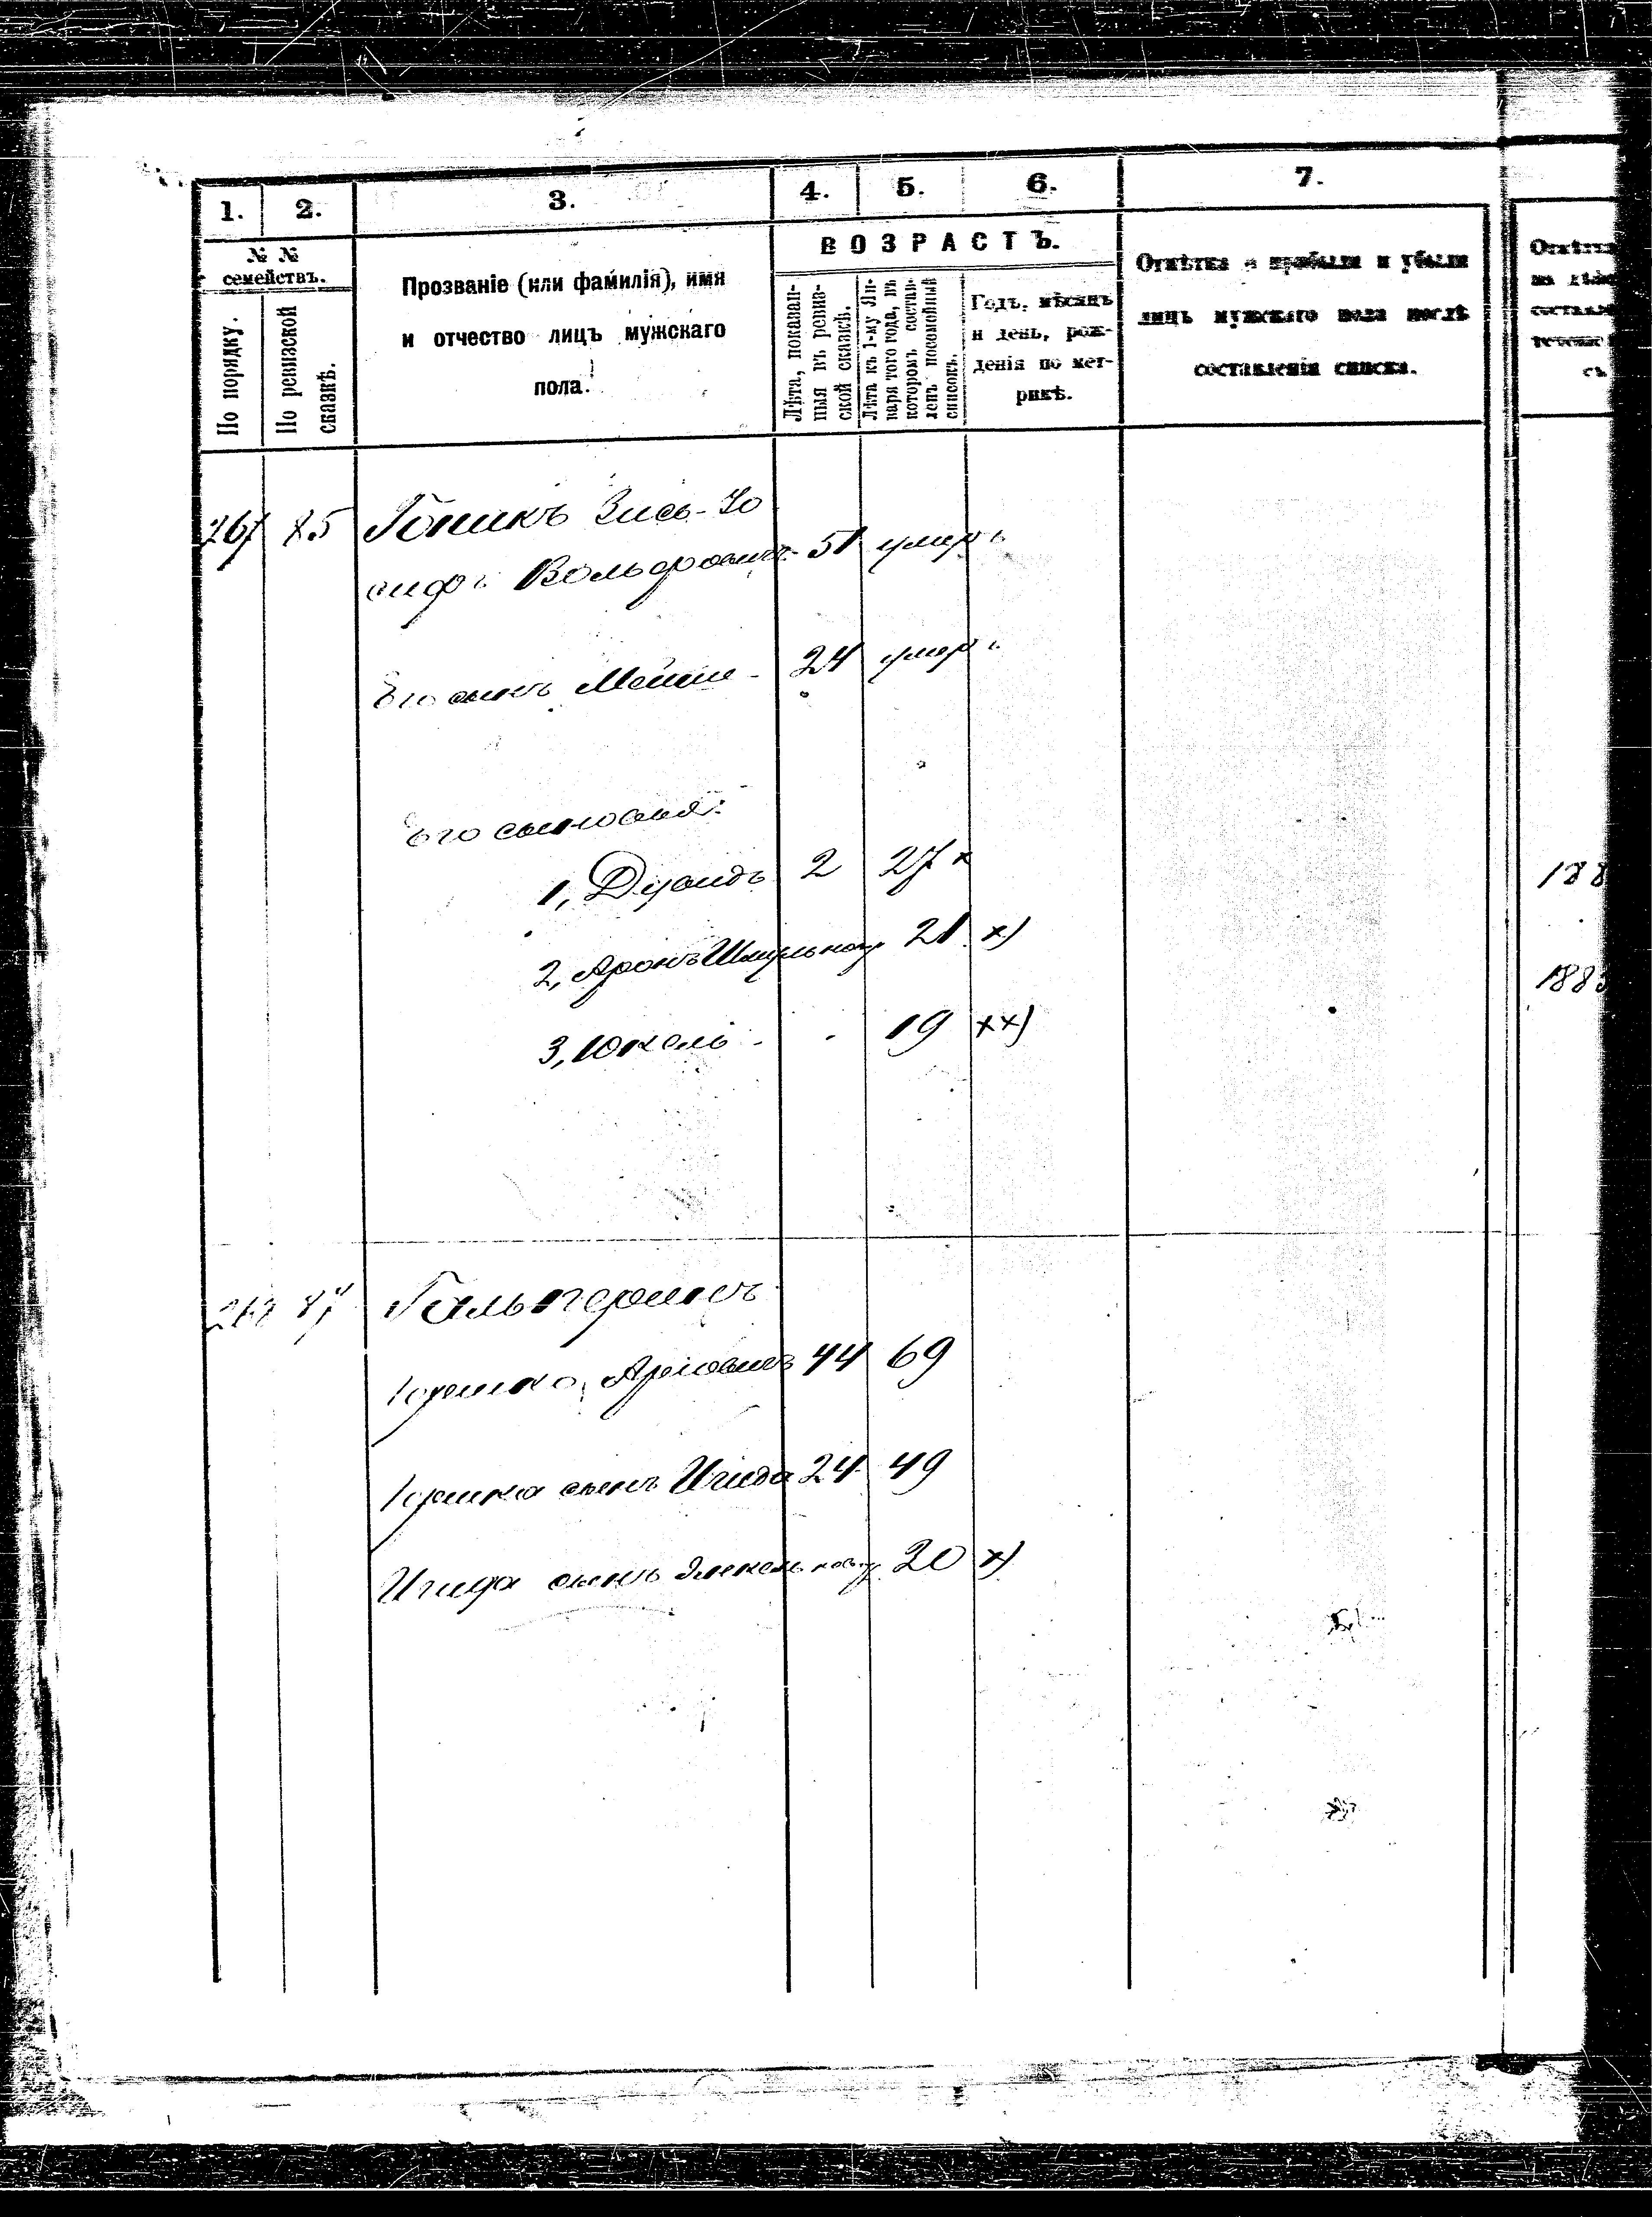 1. 2. 3. 4. 5. 6. 7.
№ № семействъ.
По порядку.
По ревизской сказкѣ.
Прозваніе (или фамилія), имя
и отчество лицъ мужскаго
пола.
ВОЗРАСТЪ.
Лѣта, показан-
ныя въ ревиз-
ской сказкѣ.
Лѣта къ 1-му Ян-
варя того года, въ
которомъ состав-
ленъ посемейный
списокъ.
Годъ, мѣсяцъ
и день, рож-
денія по мет-
рикѣ.
Отмѣтка о прибыли и убыли
лицъ мужскаго пола послѣ
составленія списка.
267 85 Гоникъ Зись-Іо
сифъ Вольфовичъ 51 умеръ
Его сынъ 24 умеръ
Его сыновья:
1, Дувидъ 2 27 х
188
2, Аронъ Шмуль 21 х)
188
3, Юкель - - 19 хх)
268 87 Гальперинъ
Іершко, Аріовичъ 44 69
Іершка сынъ Ичида 24 49
сынъ 20 х)